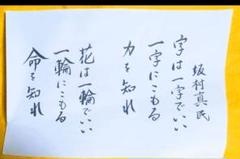 坂村真民
字は一字でいい
一字にこもる
力を知れ
花は一輪でいい
一輪にこもる
命を知れ